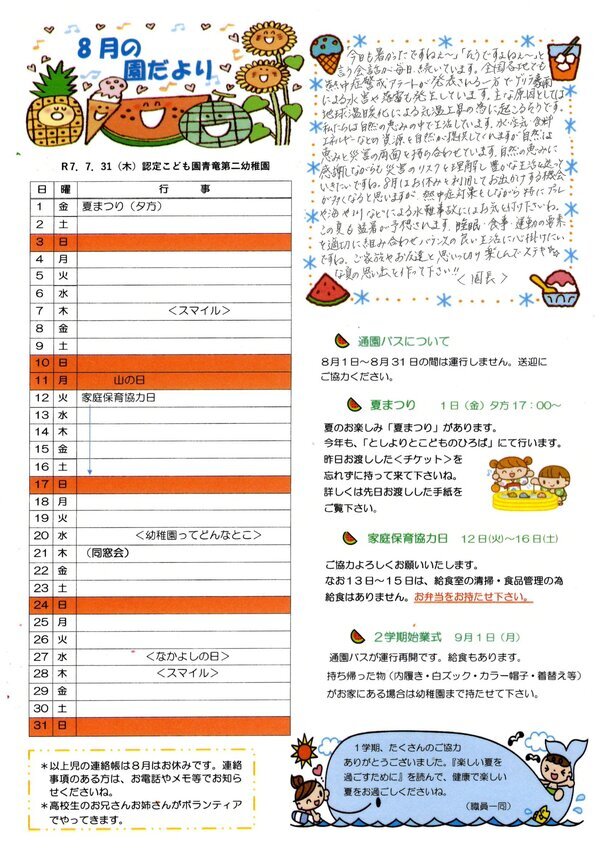 8月の
園だより
R7.7.31(木)認定こども園青竜第二幼稚園
日 曜 行 事
1 金 夏まつり(夕方)
2 土
3 日
4 月
5 火
6 水
7 木 <スマイル>
8 金
9 土
10 日
11 月 山の日
12 火 家庭保育協力日
13 水
14 木
15 金
16 土
17 日
18 月
19 火
20 水 <幼稚園ってどんなとこ>
21 木 (同窓会)
22 金
23 土
24 日
25 月
26 火
27 水 <なかよしの日>
28 木 <スマイル>
29 金
30 土
31 日
*以上児の連絡帳は8月はお休みです。連絡
事項のある方は、お電話やメモ等でお知ら
せくださいね。
*高校生のお兄さんお姉さんがボランティア
でやってきます。
今日も暑かったですねぇ〜」「そうですよねぇ〜」と
言う会話が毎日続いています。全国各地でも
熱中症警戒アラートが発表される一方でゲリラ豪雨
による水害や落雷も発生しています。主な原因としては
地球温暖化による気温上昇の為に起こるそうです。
私たちは自然の恵みの中で生活しています。水・空気・食料
エネルギーなどの資源を自然が提供してくれますが自然は
恵みと災害の両面を持ち合わせています。自然の恵みに
感謝しながらも災害のリスクを理解し豊かな生活を送って
いきたいですね。8月はお休みを利用してお出かけする機会
が多くなると思いますが 熱中症対策をしながら 特に プール
や海や川などによる水難事故にはお気を付け下さいね。
この夏も猛暑が予想されます。睡眠・食事・運動の要素
を適切に組み合わせバランスの良い生活に心掛けたい
ですね。ご家族やお友達と思いっきり楽しんでステキな
夏の思い出を作って下さい!!
<園長>
通園バスについて
8月1日〜8月31日の間は運行しません。送迎に
ご協力ください。
夏まつり 1日(金)夕方17:00〜
夏のお楽しみ「夏まつり」があります。
今年も、「としよりとこどものひろば」にて行います。
昨日お渡ししたくチケット>を
忘れずに持って来て下さいね。
詳しくは先日お渡しした手紙を
ご覧下さい。
家庭保育協力日 12日(火)〜16日(土)
ご協力よろしくお願いいたします。
なお13日〜15日は、給食室の清掃・食品管理の為
給食はありません。お弁当をお持たせ下さい。
2学期始業式 9月1日(月)
通園バスが運行再開です。給食もあります。
持ち帰った物(内履き・白ズック・カラー帽子・着替え等)
がお家にある場合は幼稚園まで持たせて下さい。
1学期、たくさんのご協力
ありがとうございました。『楽しい夏を
過ごすために』を読んで、健康で楽しい
夏をお過ごしくださいね。
(職員一同)